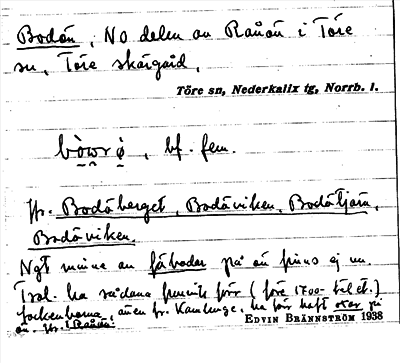 Bodön, NO delen av Rånön i Töre
sn, Töre skärgård.
Töre sn, Nederkalix tg, Norrb. l.
bf. fem.
Jfr. Bodöberget, Bodöviken, Bodötjärn,
Bodöviken.
Ngt minne av fäbodar på ön finns ej nu.
Trol. ha sådana funnits förr (före 1700-talet.)
även fr. ha förr haft på
ön. Jfr.
EDVIN BRÄNNSTRÖM 1938